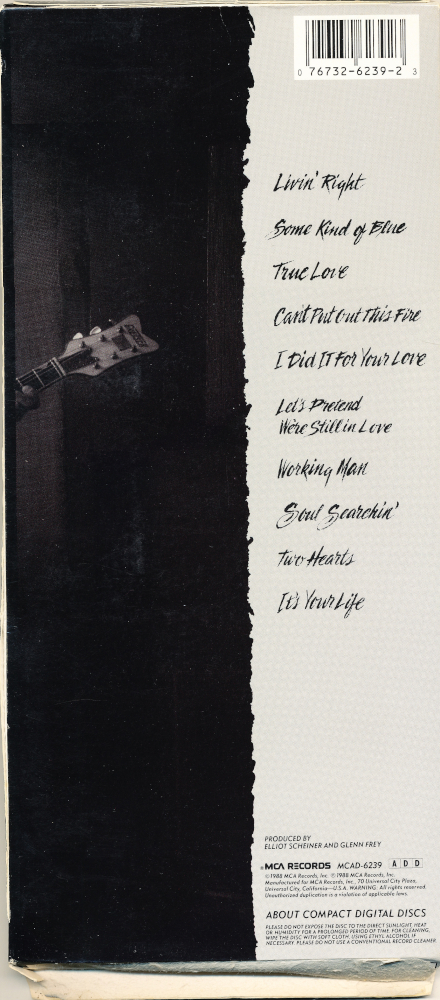 0 76732-6239-2 3
Livin' Right
Some Kind of Blue
True Love
Can't Put Out This Fire
I Did It For Your Love
Let's Pretend
We're Still in Love
Working Man
Soul Searchin'
Two Hearts
It's Your Life
PRODUCED BY
ELLIOT SCHEINER AND GLENN FREY
MCA RECORDS MCAD-6239 A D D
©1988 MCA Records, Inc. ℗1988 MCA Records, Inc.
Manufactured for MCA Records, Inc., 70 Universal City Plaza,
Universal City, California—U.S.A. WARNING: All rights reserved.
Unauthorized duplication is a violation of applicable laws.
ABOUT COMPACT DIGITAL DISCS
PLEASE DO NOT EXPOSE THE DISC TO THE DIRECT SUNLIGHT, HEAT
OR HUMIDITY FOR A PROLONGED PERIOD OF TIME. FOR CLEANING,
WIPE THE DISC WITH SOFT CLOTH, USING ETHYL ALCOHOL IF
NECESSARY. PLEASE DO NOT USE A CONVENTIONAL RECORD CLEANER.